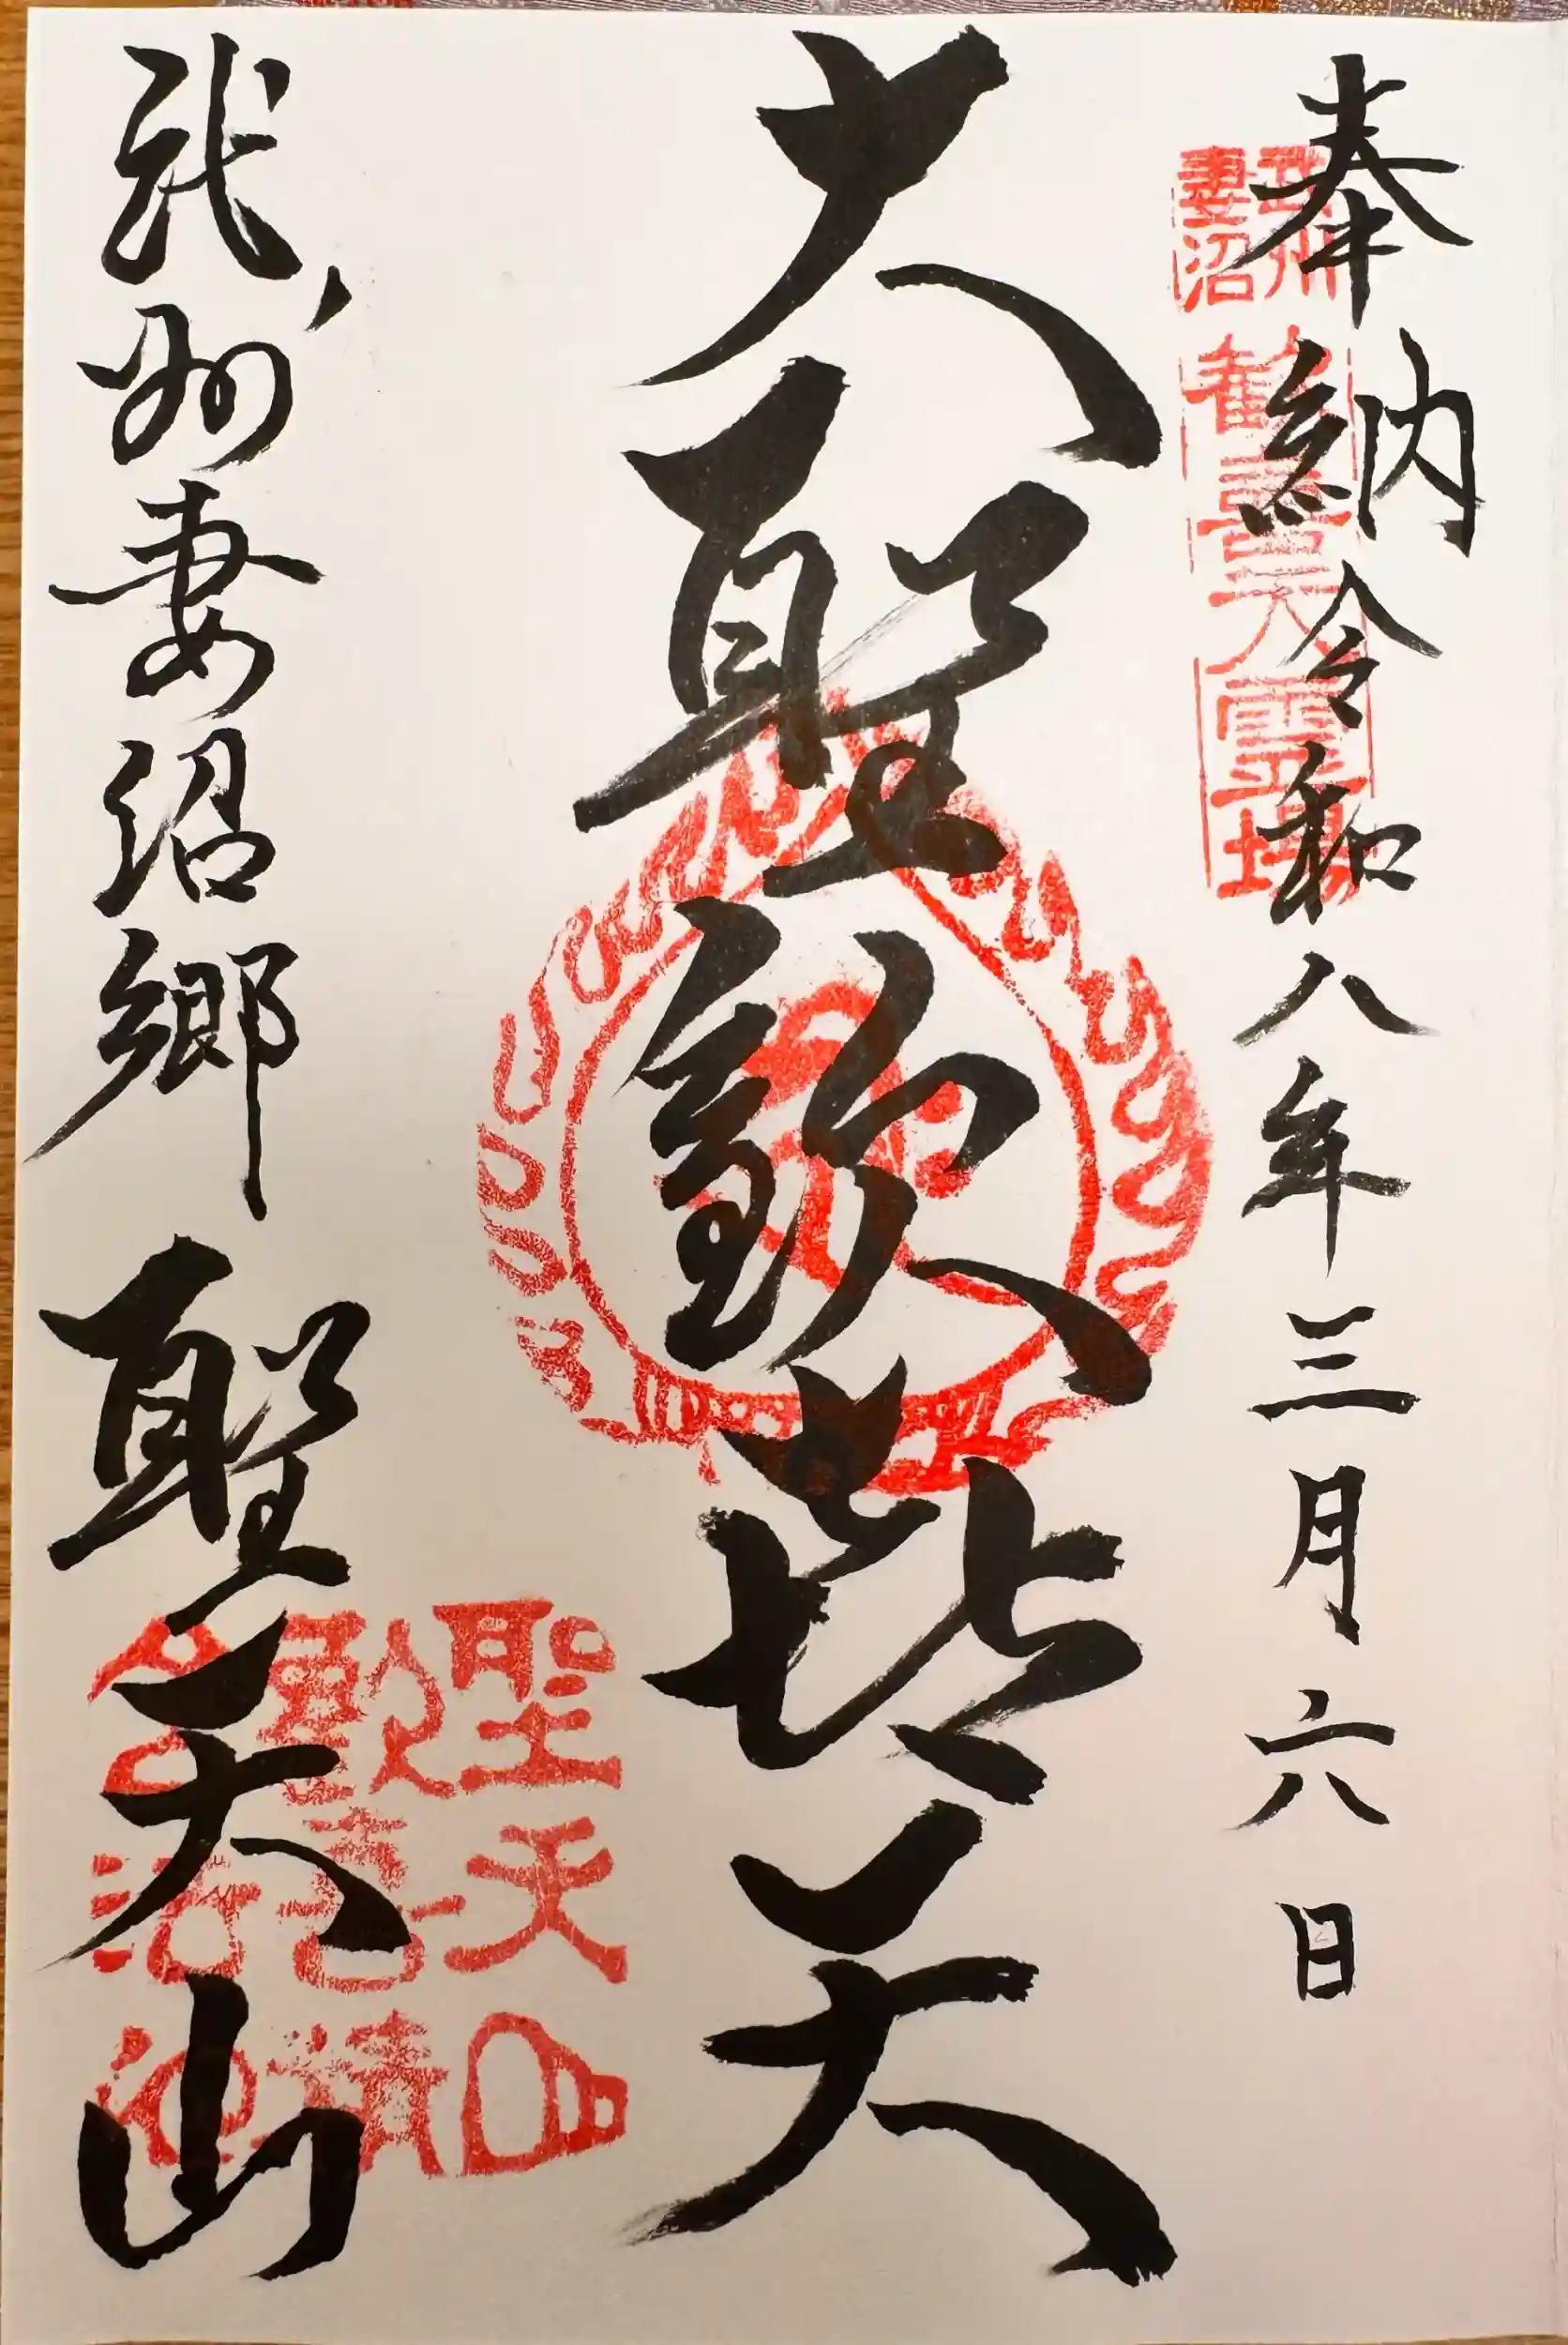 奉納 令和八年三月六日
武州妻沼
歓喜天霊場
大聖歓㐂天
武州妻沼郷 聖天山
聖天山